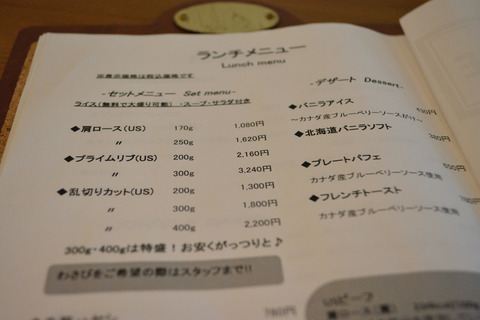 ランチメニュー
Lunch menu
※表示価格は税込価格です
-セットメニュー Set menu-
ライス(無料で大盛り可能)・スープ・サラダ付き
◆肩ロース(US) 170g 1,080円
〃 250g 1,620円
◆プライムリブ(US) 200g 2,160円
〃 300g 3,240円
◆乱切りカット(US) 200g 1,300円
〃 300g 1,800円
〃 400g 2,200円
300g・400gは特盛!お安くがっつりと♪
わさびをご希望の際はスタッフまで!!
-デザート Dessert-
◆バニラアイス
~カナダ産ブルーベリーソースがけ~
◆北海道バニラソフト 380円
◆プレートパフェ
カナダ産ブルーベリーソース使用
◆フレンチトースト
カナダ産ブルーベリーソース使用
USビーフ